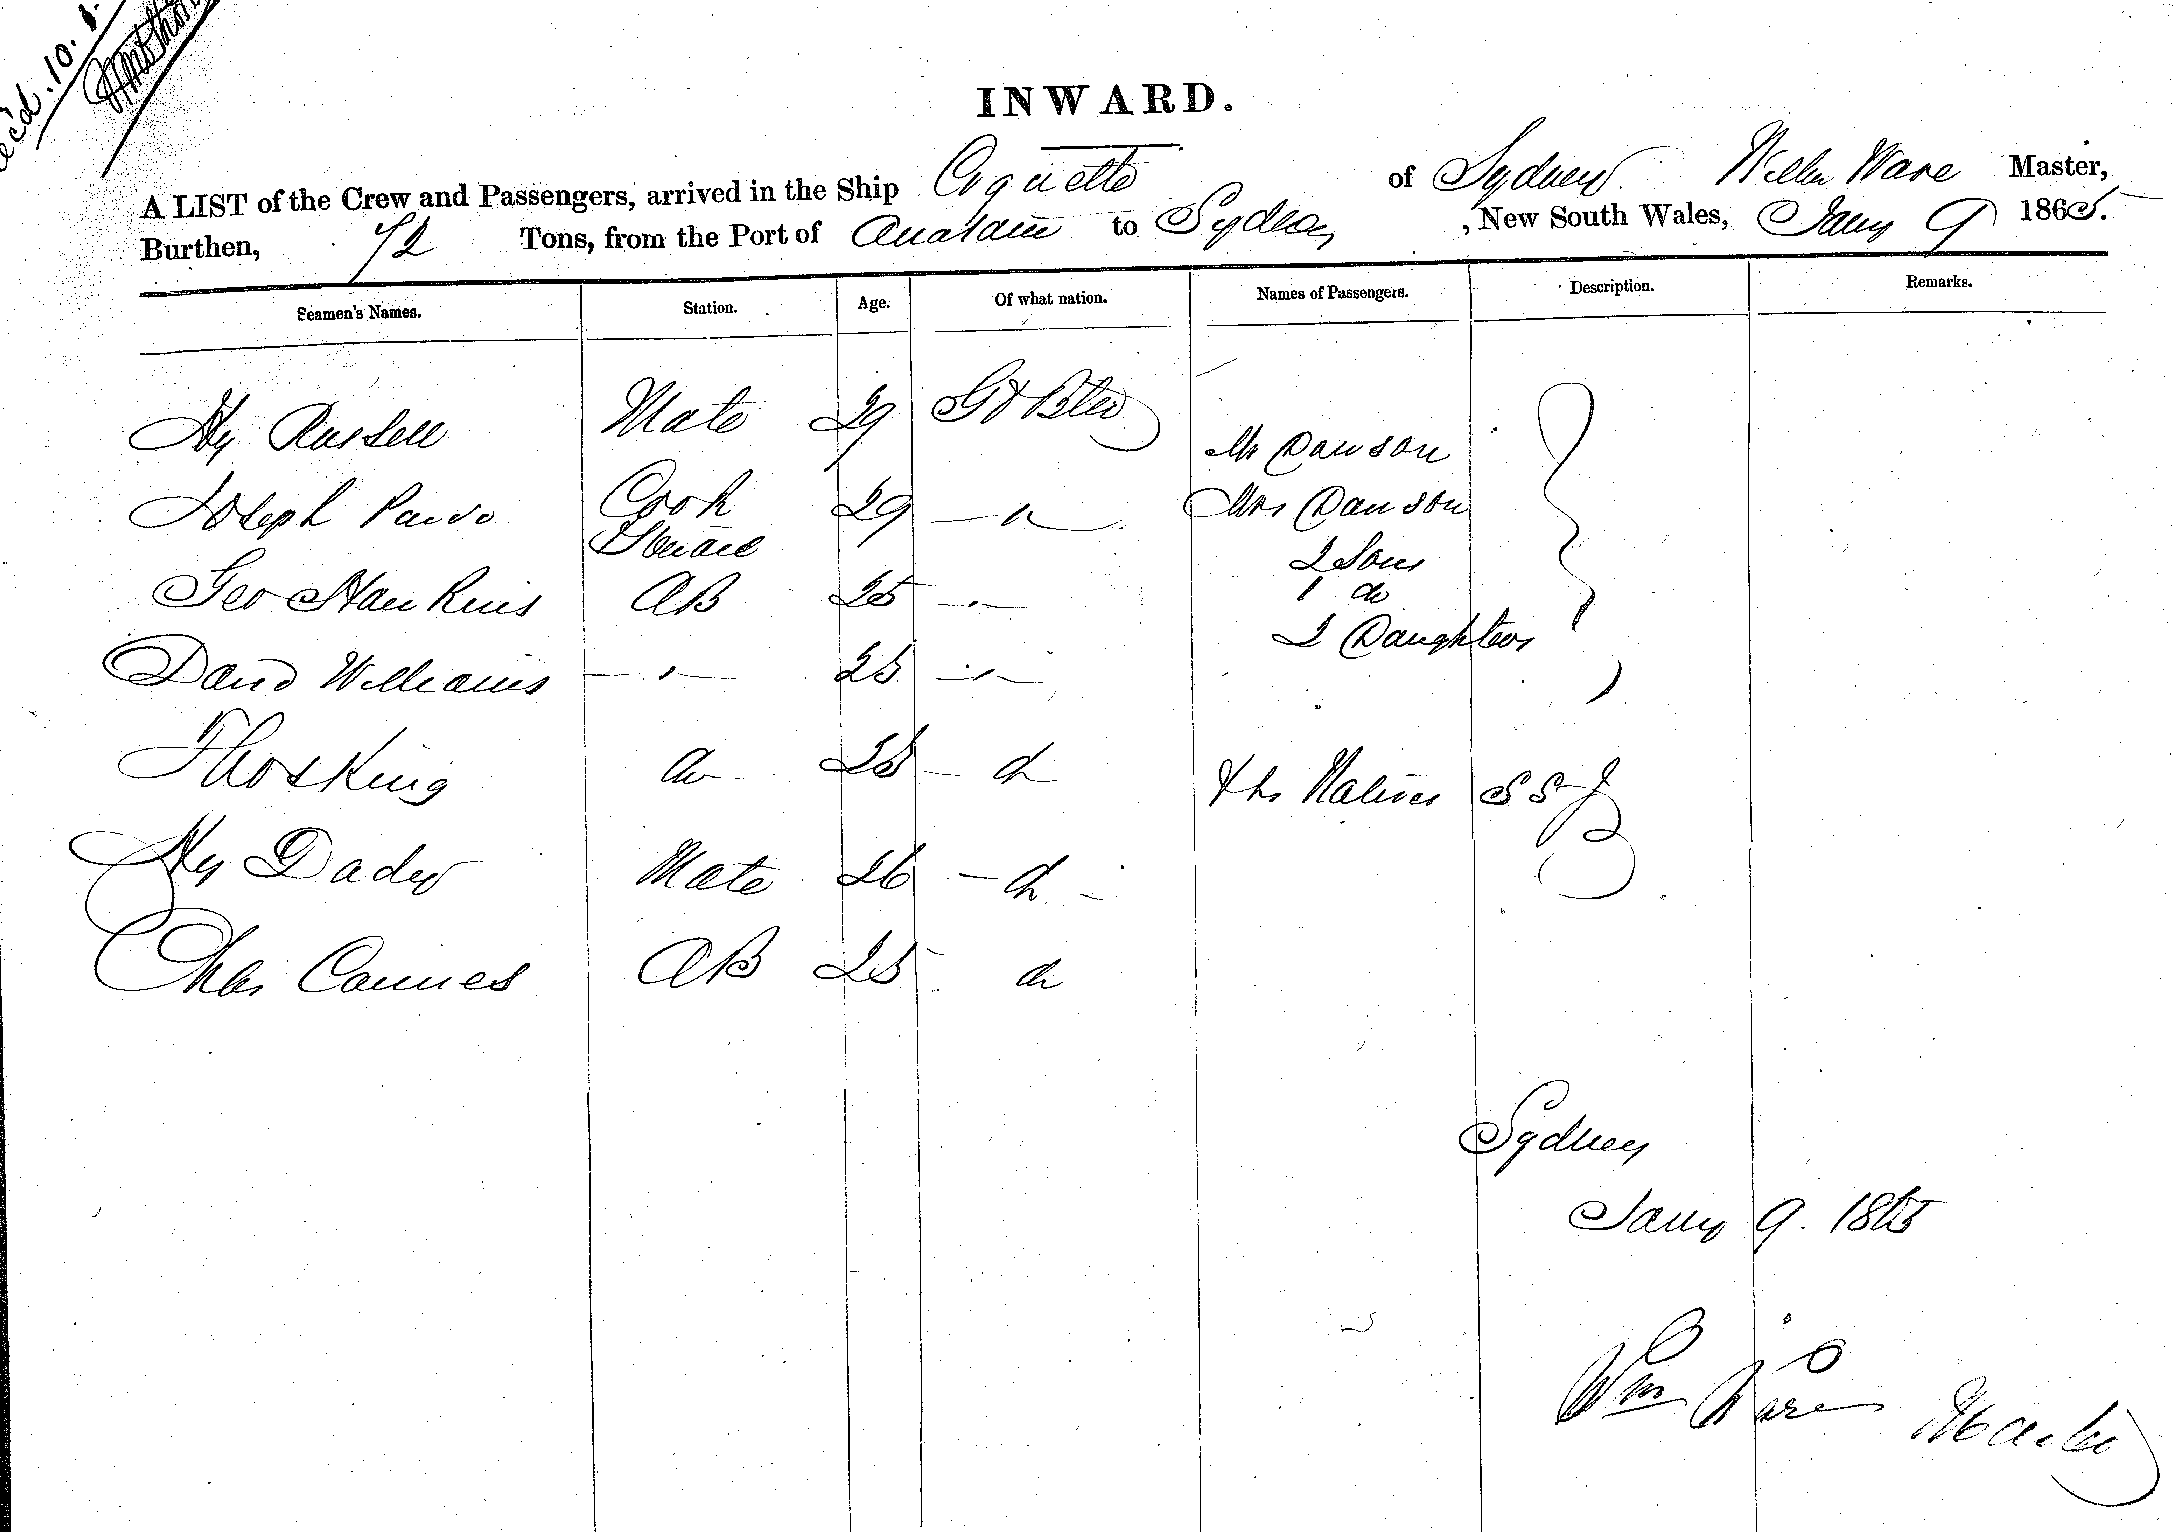 INWARD.
A LIST of the Crew and Passengers, arrived in the Ship Coquette of Sydney Willm Ware Master,
Burthen, 72 Tons, from the Port of to Sydney, New South Wales, Jany 9 1865.
Seamen's Names. Station. Age. Of what nation. Names of Passengers. Description. Remarks.
Hy Russell Mate 29 Gt Mr Dawson
Joseph Cook 29 Mrs Dawson
2 Sons
Geo Hawkins AB 25 1 do
2 Daughters
David Williams 25
Thos King do 25 do Natives
Hy Mate 26 do
Chas AB 25 do
Sydney
Jany 9. 1865
Wm Ware Master